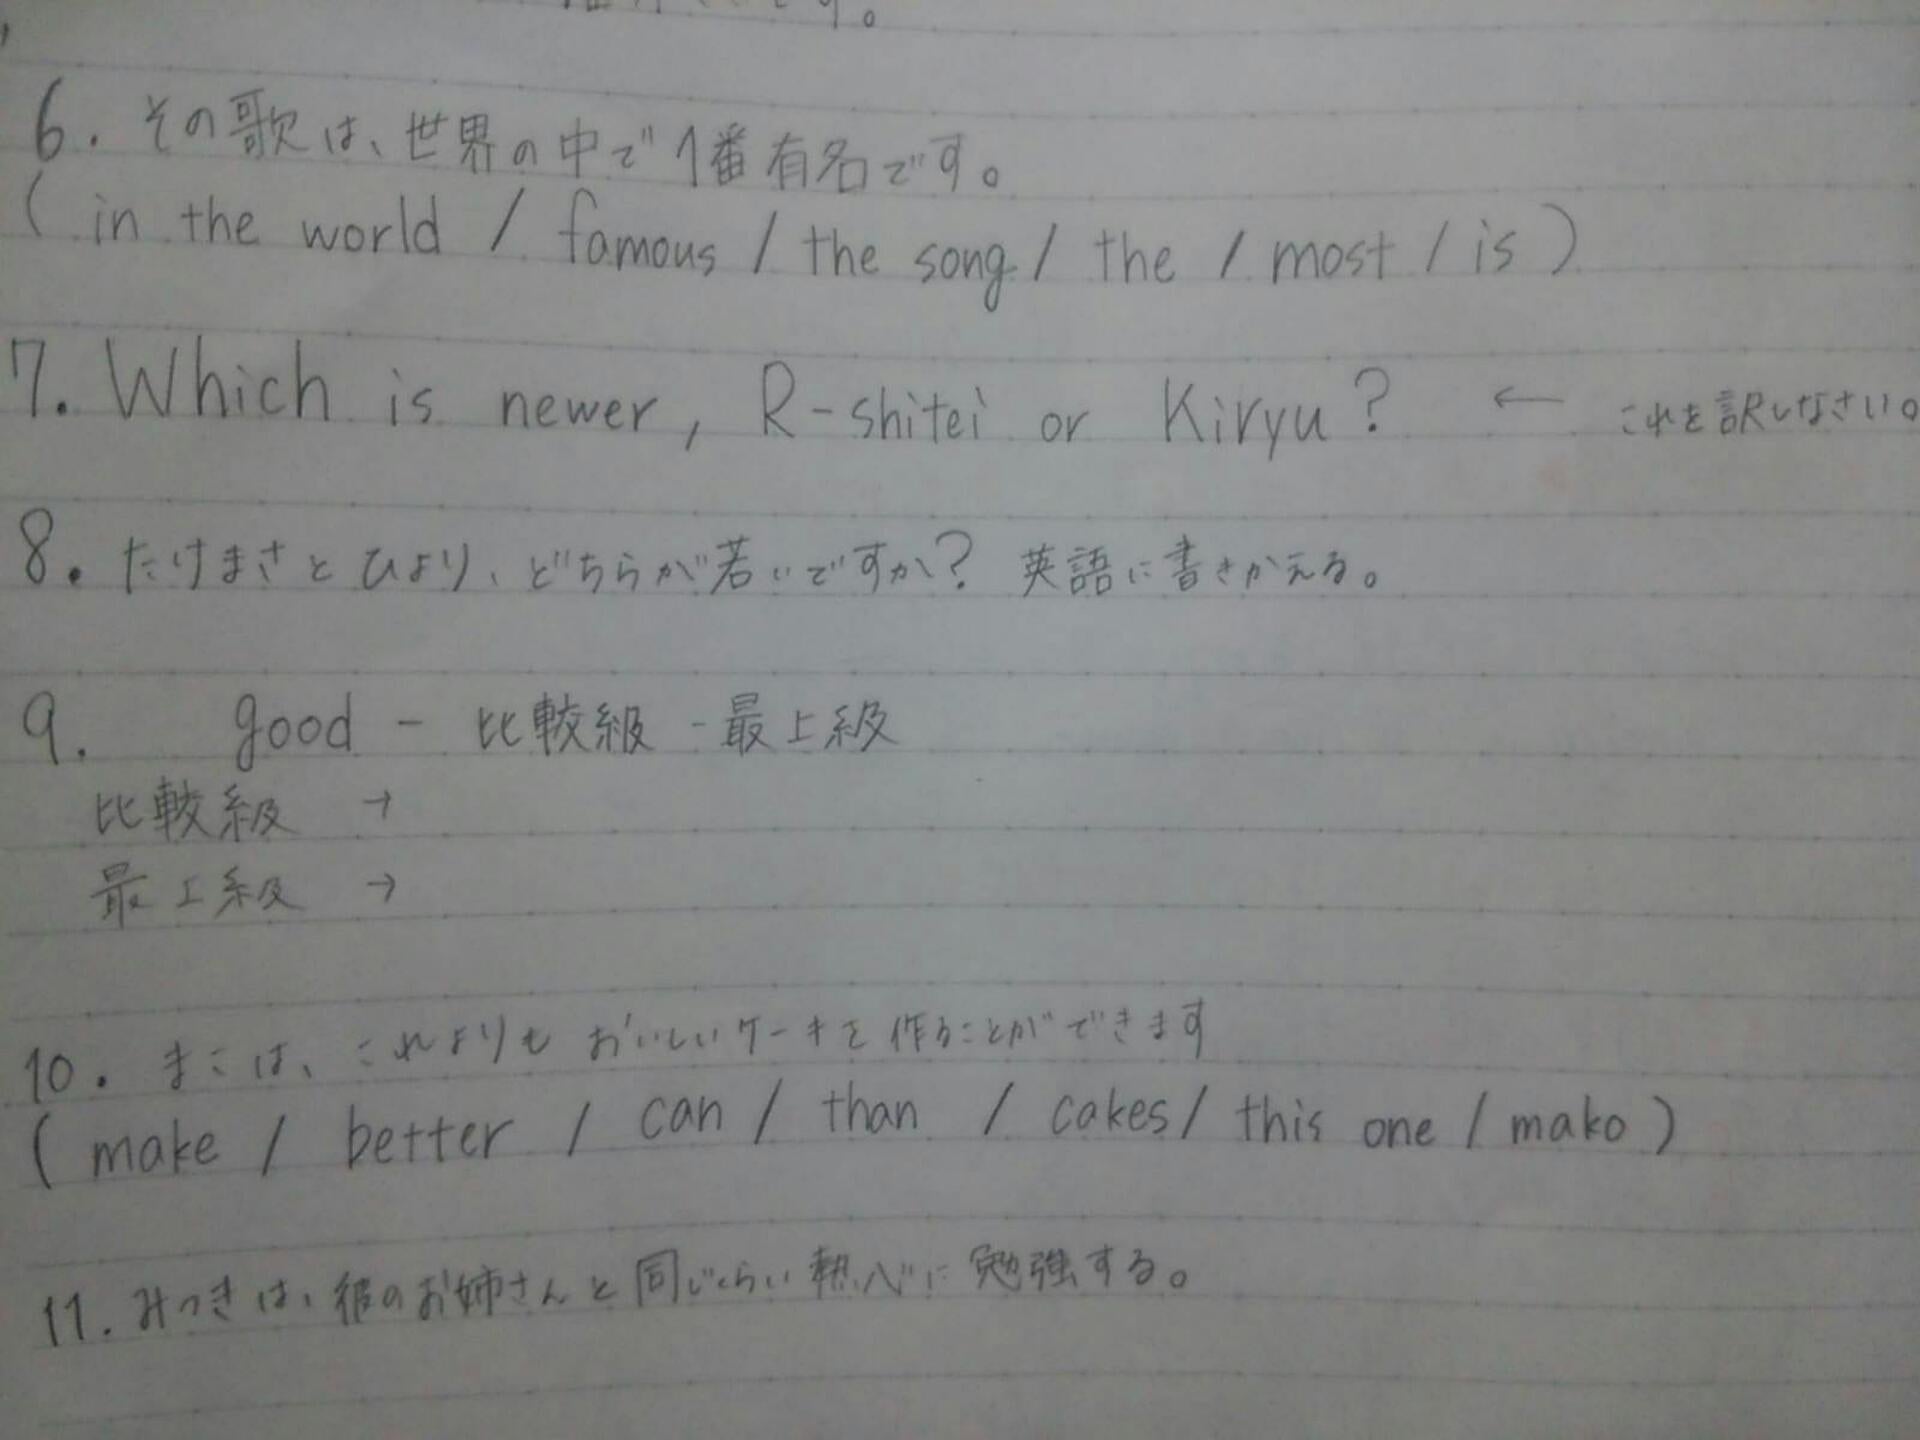 す。
6. その歌は、世界の中で1番有名です。
( in the world / famous / the song / the / most / is )
7. Which is newer, R-shitei or Kiryu? ← これを訳しなさい。
8. たけまさとひより、どちらが若いですか? 英語に書きかえる。
9. good - 比較級 - 最上級
比較級 →
最上級 →
10. まこは、これよりもおいしいケーキを作ることができます
( make / better / can / than / cakes / this one / mako )
11. みつきは、彼のお姉さんと同じくらい熱心に勉強する。